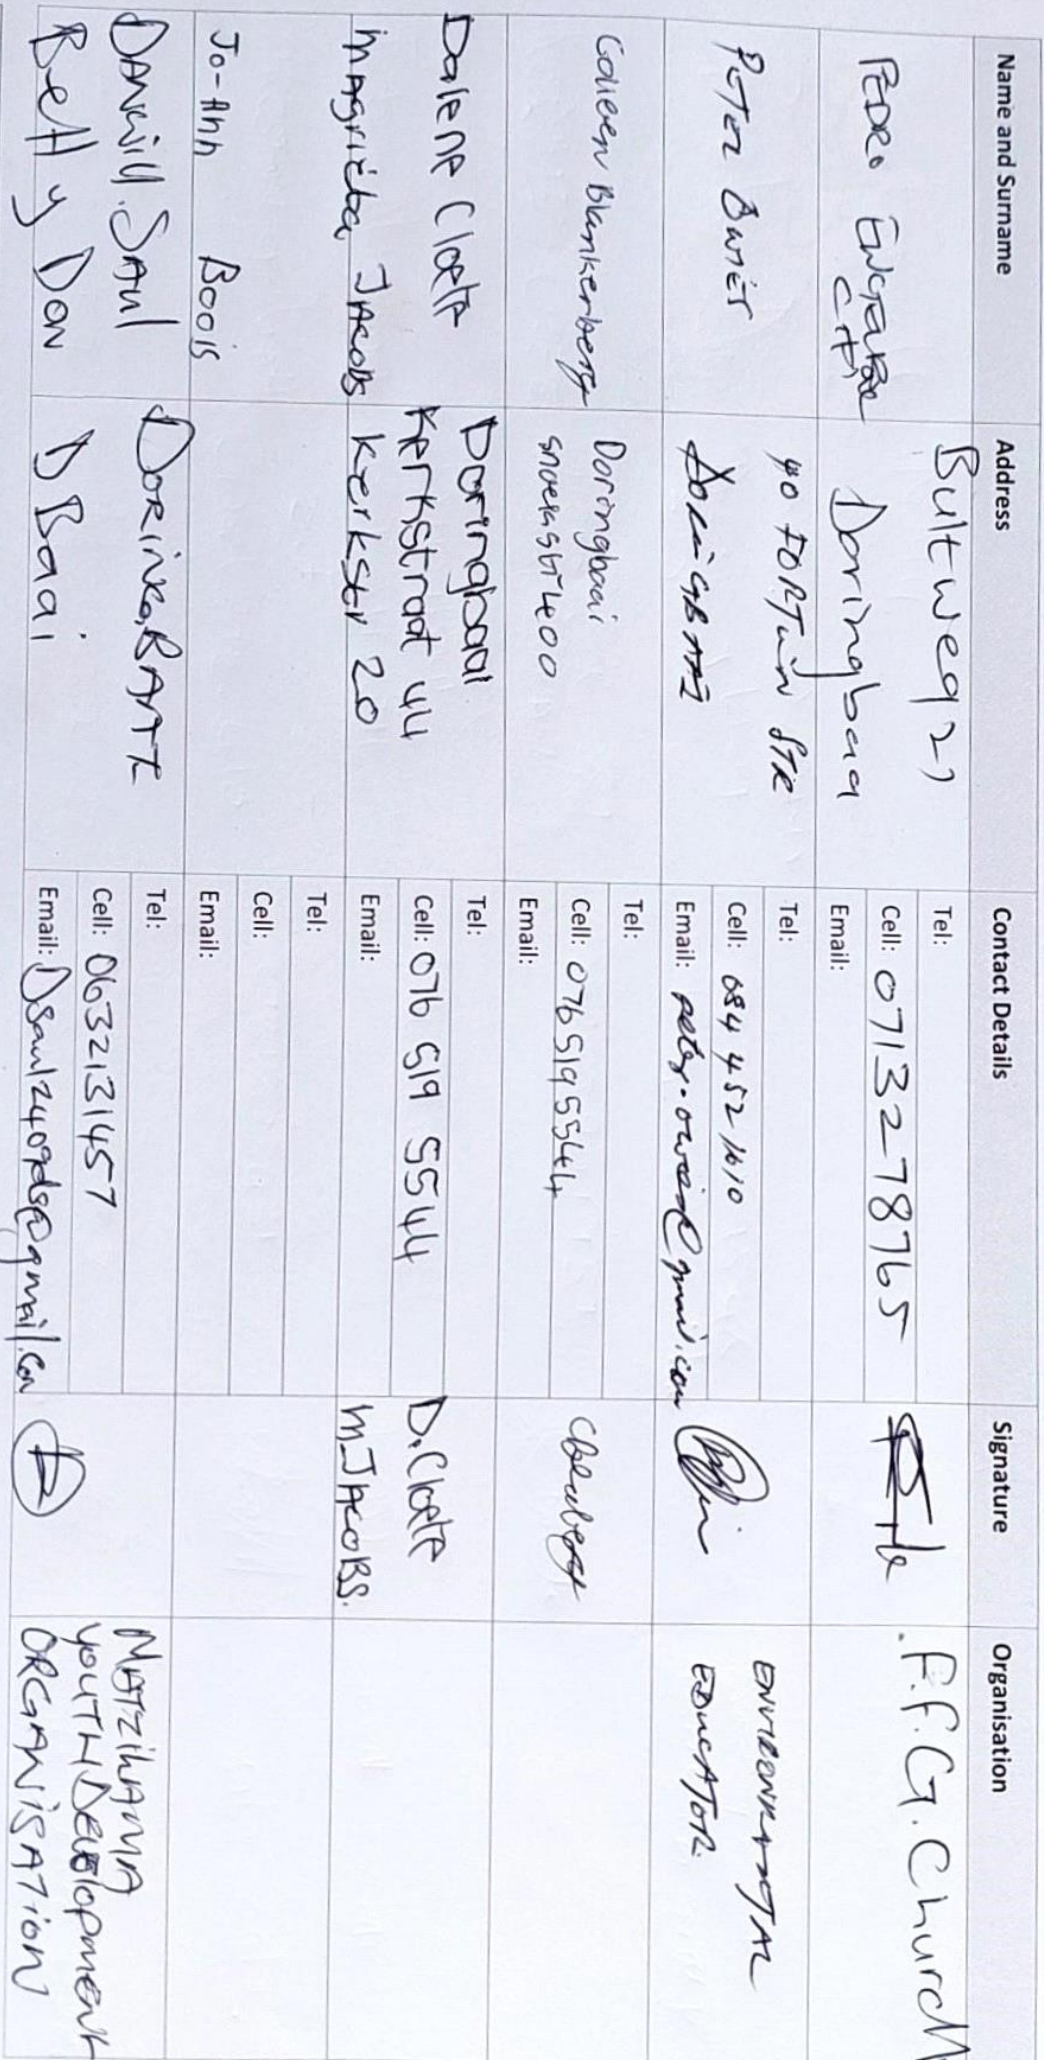 Name and Surname
Address
Contact Details
Signature
Organisation
PEDRO
Bultweg 27
Doringbaa
Tel:
Cell: 0713278765
Email:
F.F.G. Church
40 FORTUIN STR
Tel:
Cell: 084 452 1610
Email:
ENVIRONMENTAL
EDUCATOR.
Colleen Blankenberg
Doringbaai
400
Tel:
Cell: 0765195544
Email:
Dalene Cloete
Doringbaai
Kerkstraat 44
Tel:
Cell: 076 519 5544
Email:
D. Cloete
Magrieta Jacobs
Kerkstr 20
M. JACOBS.
Jo-Ann Boois
Tel:
Cell:
Email:
Danvill. Saul
Betty Don
D Baai
Tel:
Cell: 0632131457
Email: Dsaul2409ds@gmail.com
MATZIKAMA
YOUTH DEVELOPMENT
ORGANISATION